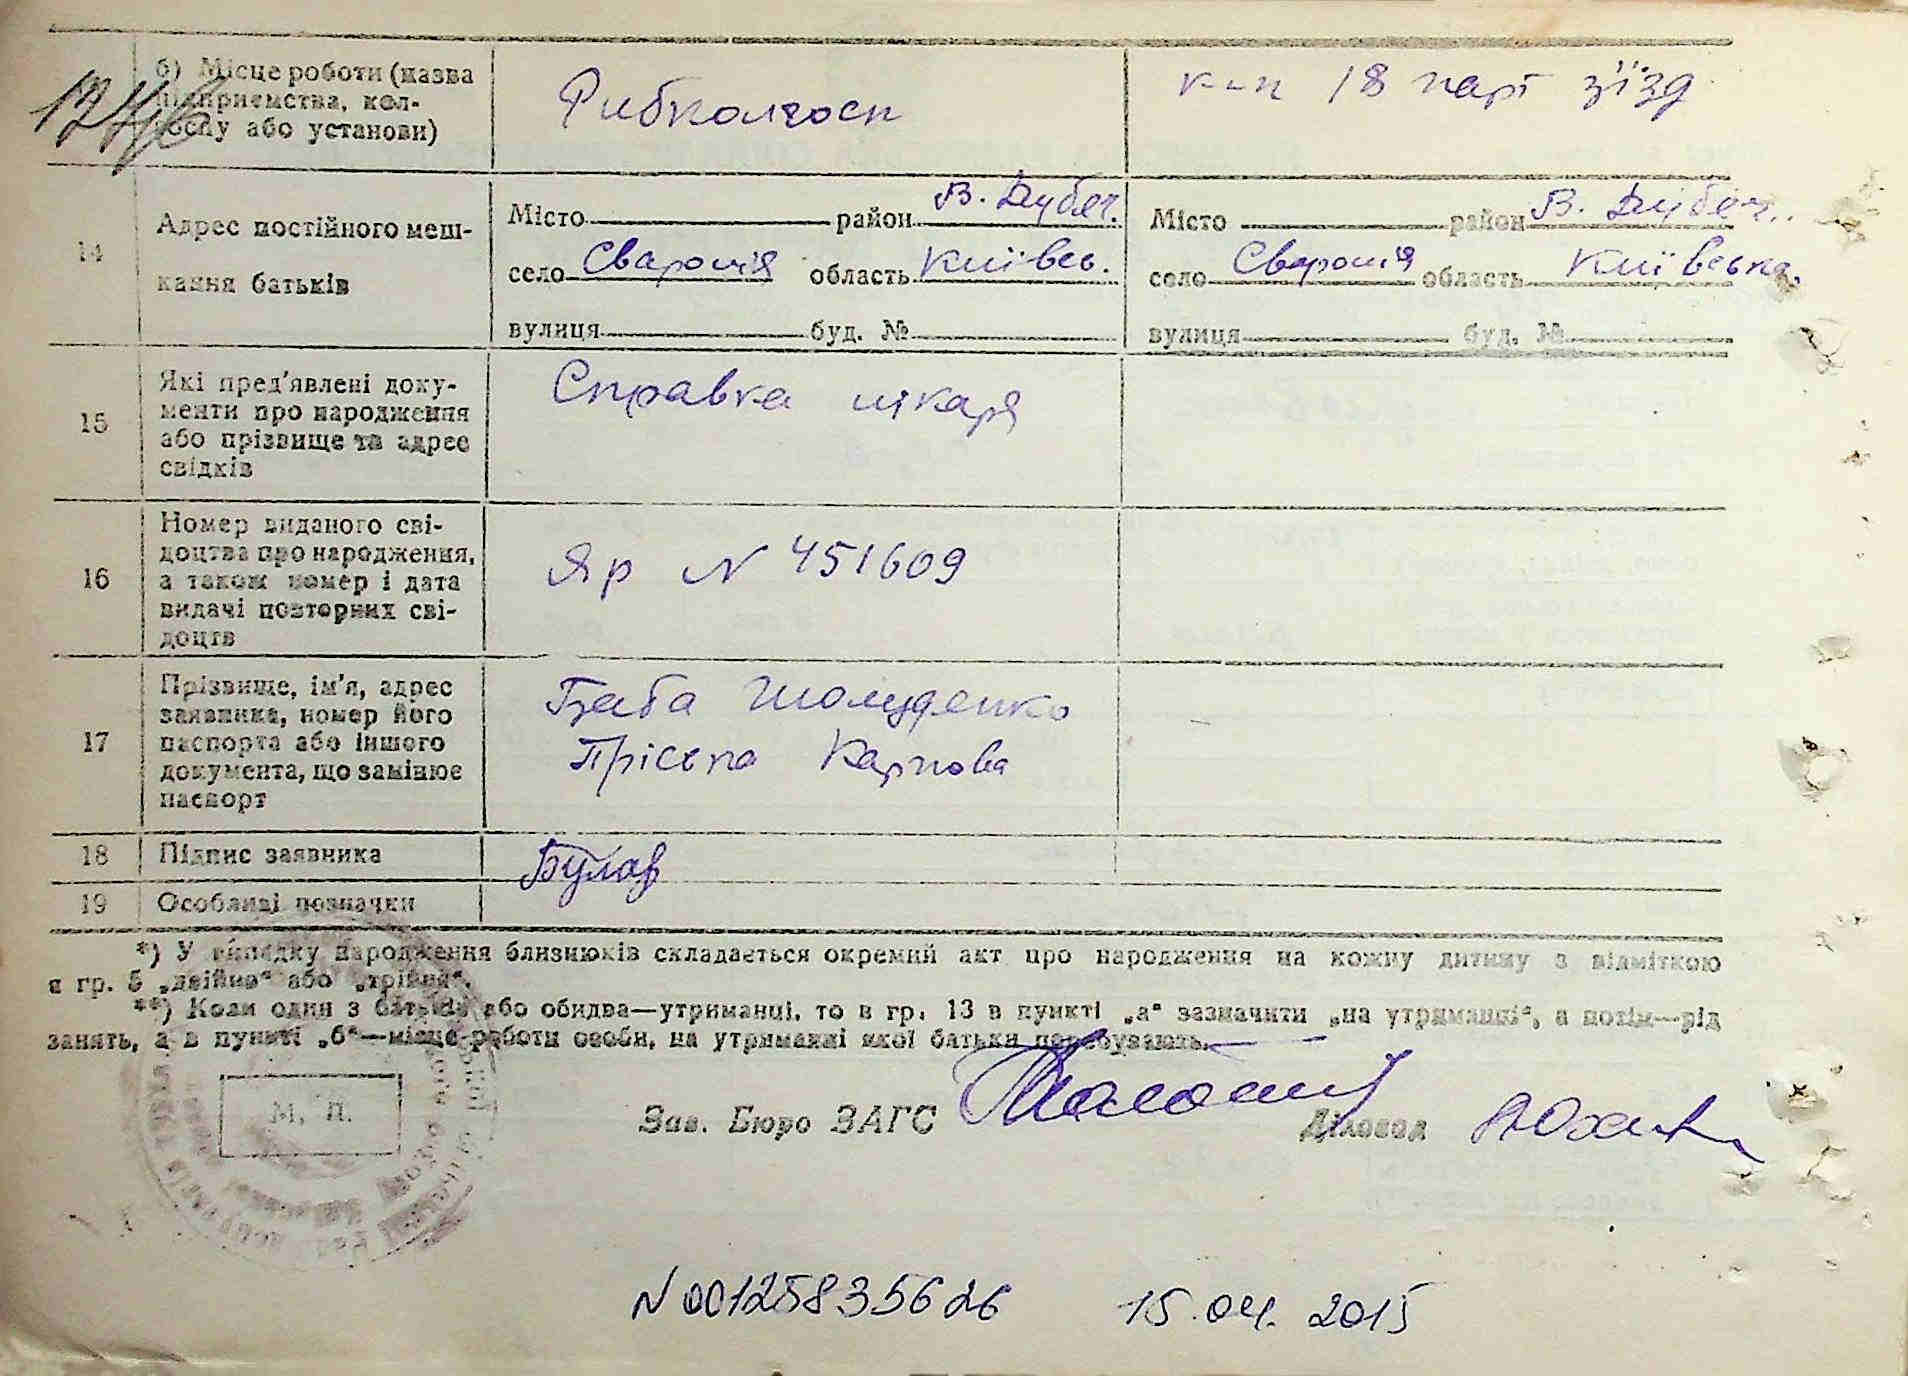 б) Місце роботи (назва
підприємства, кол-
госпу або установи)
Рибколгосп
к-п 18 парт з'їзд
14
Адрес постійного меш-
кання батьків
Місто район В. Дубеч.
село Сваромія область Київсь.
вулиця буд. №
Місто район В. Дубеч.
село Сваромія область Київська.
вулиця буд. №
15
Які пред'явлені доку-
менти про народження
або прізвище та адрес
свідків
Справка лікаря
16
Номер виданого сві-
доцтва про народження,
а також номер і дата
видачі повторних сві-
доцтв
Яр N 451609
17
Прізвище, ім'я, адрес
заявника, номер його
паспорта або іншого
документа, що замінює
паспорт
Баба Шолуденко
Пріська Карпова
18
Підпис заявника
Булав
19
Особливі позначки
*) У випадку народження близнюків складається окремий акт про народження на кожну дитину з відміткою
в гр. 5 „двійня“ або „трійня“.
**) Коли один з батьків або обидва—утриманці, то в гр. 13 в пункті „а“ зазначити „на утриманні“, а потім—рід
занять, а в пункті „б“—місце роботи особи, на утриманні якої батьки перебувають.
М. П.
Зав. Бюро ЗАГС
Діловод
N 00125835626
15.04.2015